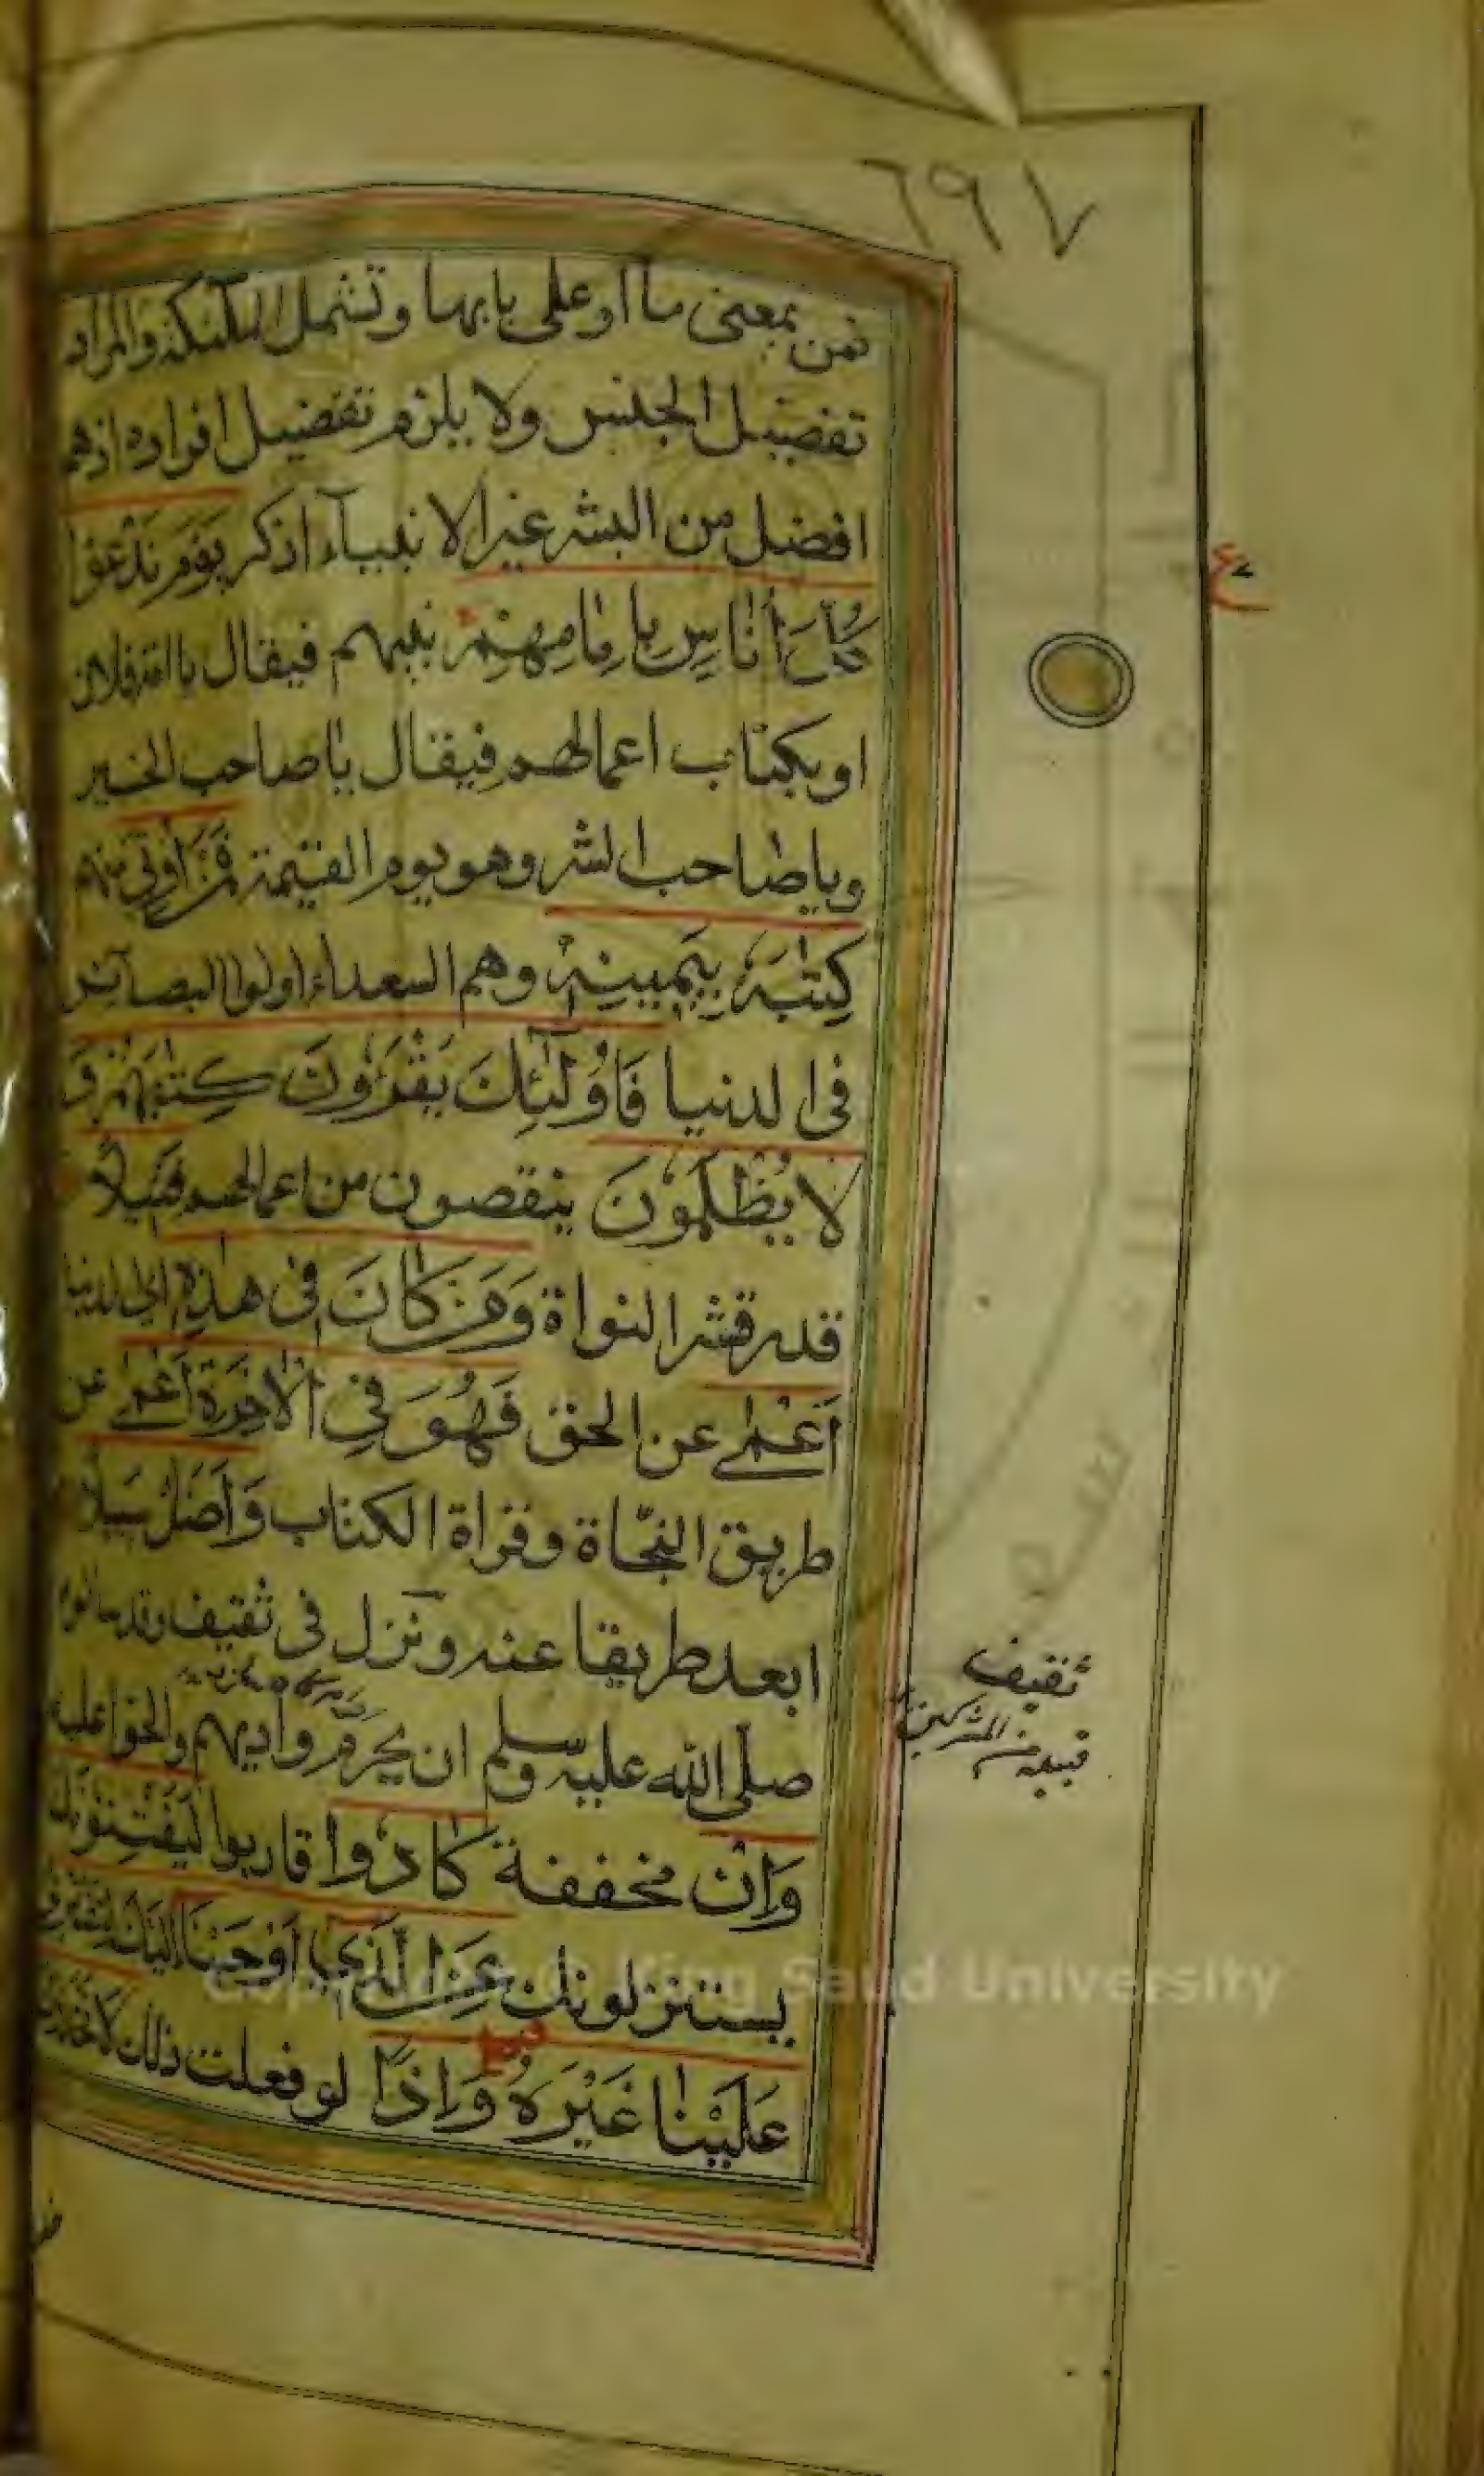 ٦٩٧
فمن بمعنى ما او على بابها وتشمل الملٓئكة والمراد
تفضيل الجنس ولا يلزم تفضيل افراده اذ هم
افضل من البشر غير الانبيآء اذكر يَوْمَ نَدْعُوْا
كُلَّ أُنَاسٍ بِاِمَامِهِمْ نبيهم فيقال يا امة فلان
او بكتاب اعمالهم فيقال يا صاحب الخير
ويا صاحب الشر وهو يوم القيٰمة فَمَنْ اُوْتِيَ منهم
كِتٰبَهٗ بِيَمِيْنِهٖ وهم السعداء اولوا البصآئر
في الدنيا فَاُولٰٓئِكَ يَقْرَءُوْنَ كِتٰبَهُمْ وَ
لَا يُظْلَمُوْنَ ينقصون من اعمالهم فَتِيْلًا
قدر قشر النواة وَمَنْ كَانَ فِيْ هٰذِهٖ اي الدنيا
اَعْمٰى عن الحق فَهُوَ فِي الْاٰخِرَةِ اَعْمٰى عن
طريق النجاة وقراة الكتاب وَاَضَلُّ سَبِيْلًا
ابعد طريقا عنه ونزل في ثقيف وقد سالوه
صلّى الله عليه وسلم ان يحرم واديهم والحوا عليه
وَاِنْ مخففة كَادُوْا قاربوا لَيَفْتِنُوْنَكَ
يستنزلونك عَنِ الَّذِيْ اَوْحَيْنَا اِلَيْكَ لِتَفْتَرِيَ
عَلَيْنَا غَيْرَهٗ وَاِذًا لو فعلت ذلك لَاتَّخَذُوْكَ
ع
ثقيف
قبيلة من المشركين
Copyright © King Saud University